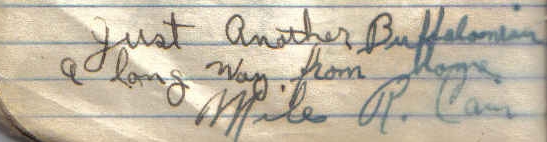 Just Another Buffalonian
a long way from home
Mike R. Cain